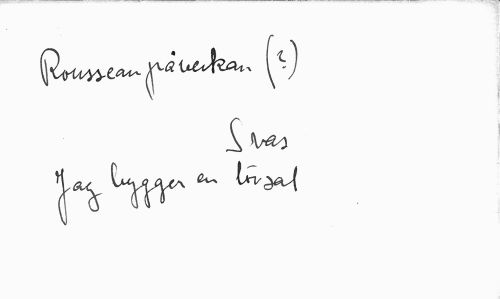 Rousseaupåverkan (?)
Svas
Jag bygger en lövsal